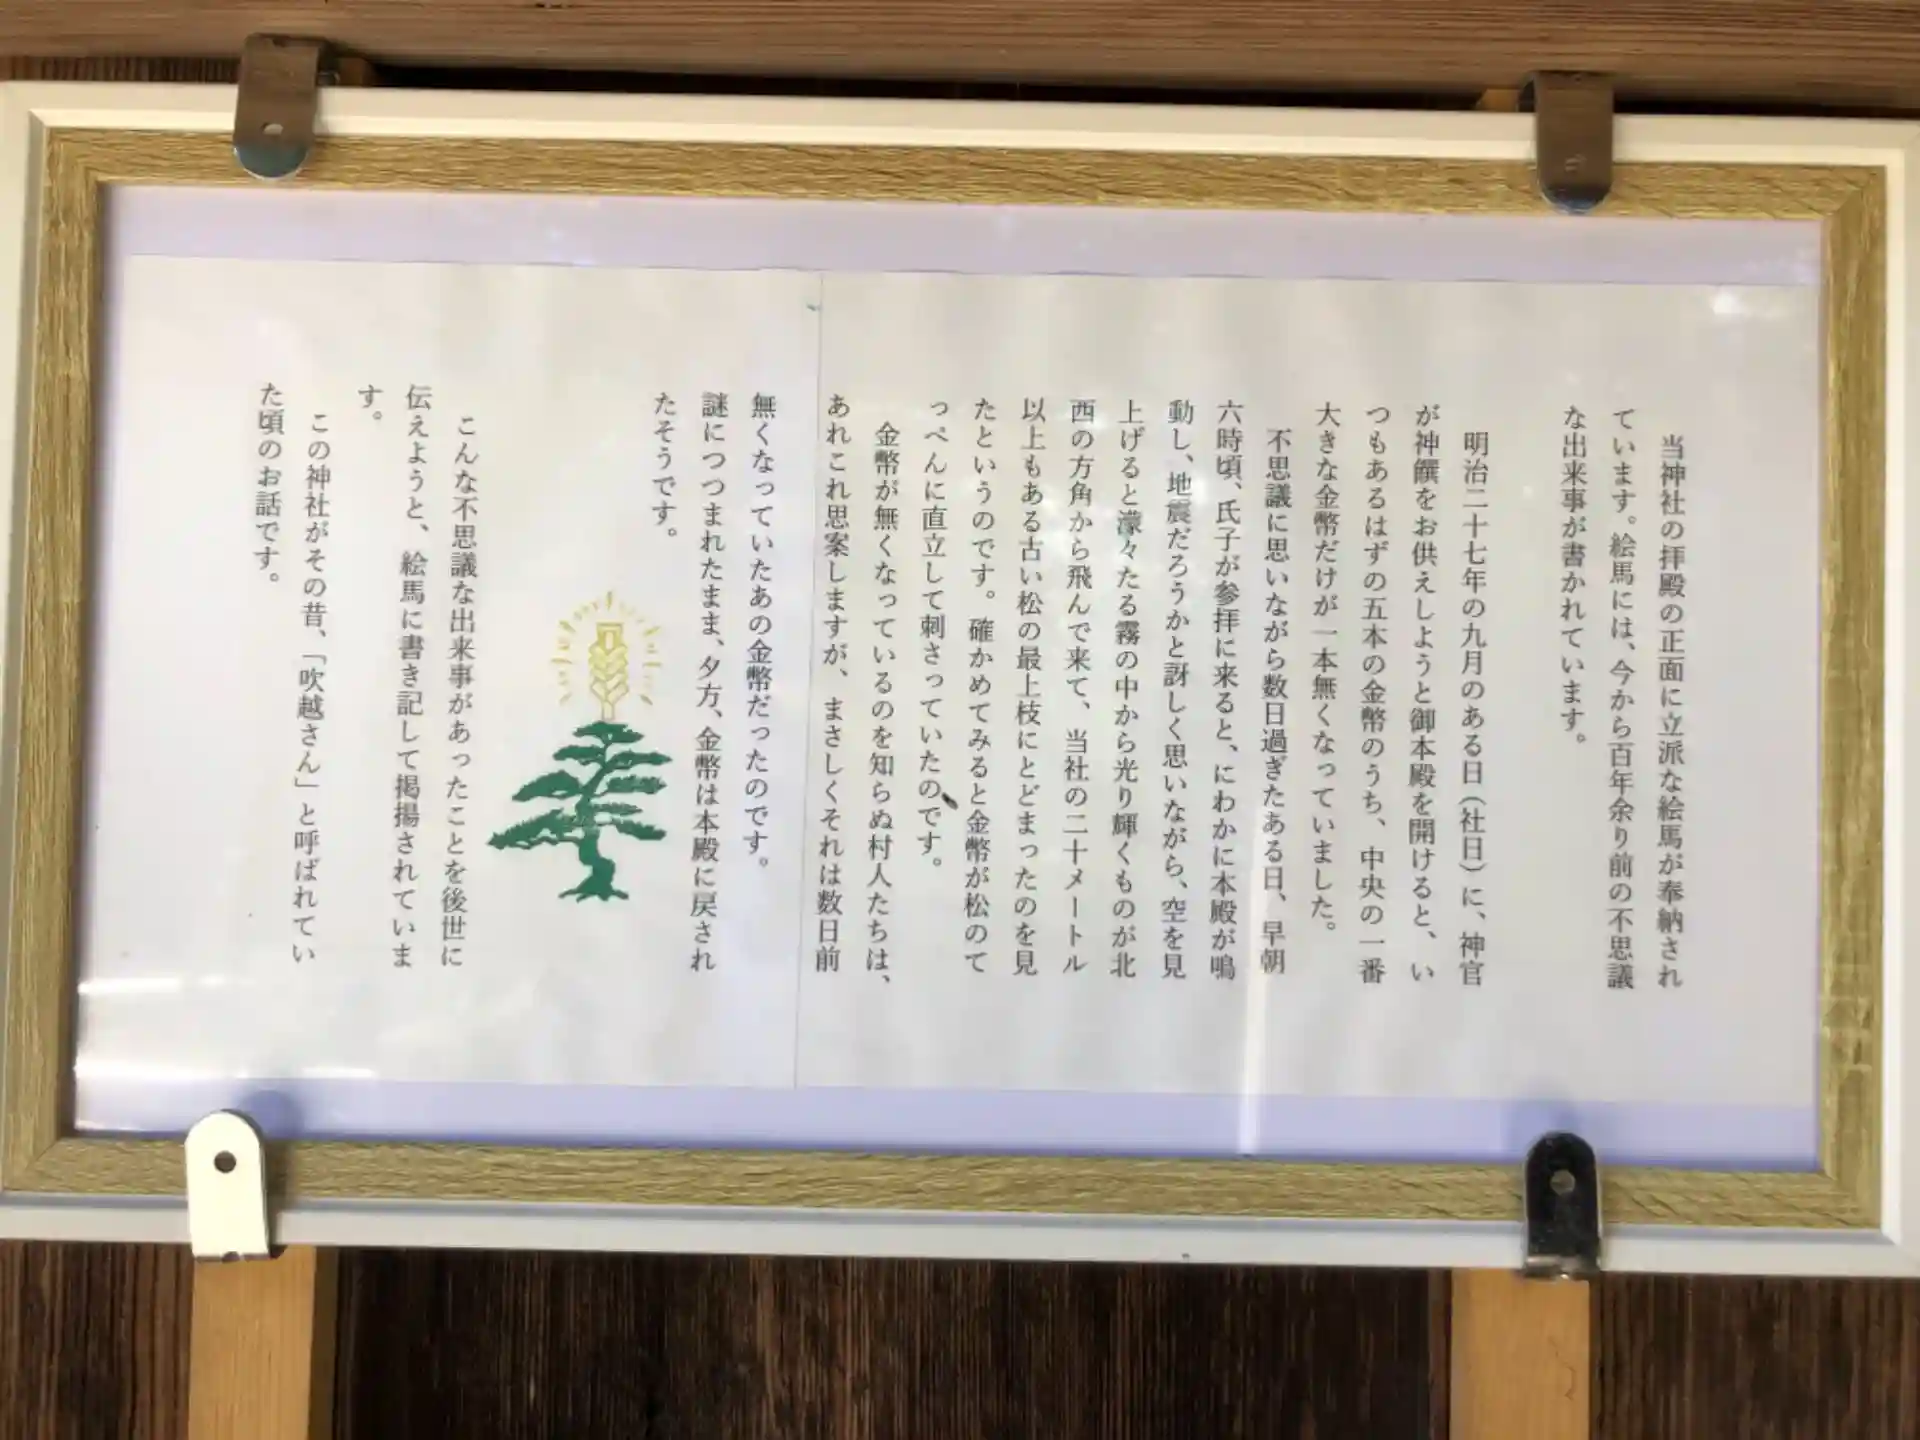 当神社の拝殿の正面に立派な絵馬が奉納され
ています。絵馬には、今から百年余り前の不思議
な出来事が書かれています。
明治二十七年の九月のある日（社日）に、神官
が神饌をお供えしようと御本殿を開けると、い
つもあるはずの五本の金幣のうち、中央の一番
大きな金幣だけが一本無くなっていました。
不思議に思いながら数日過ぎたある日、早朝
六時頃、氏子が参拝に来ると、にわかに本殿が鳴
動し、地震だろうかと訝しく思いながら、空を見
上げると濛々たる霧の中から光り輝くものが北
西の方角から飛んで来て、当社の二十メートル
以上もある古い松の最上枝にとどまったのを見
たというのです。確かめてみると金幣が松のて
っぺんに直立して刺さっていたのです。
金幣が無くなっているのを知らぬ村人たちは、
あれこれ思案しますが、まさしくそれは数日前
無くなっていたあの金幣だったのです。
謎につつまれたまま、夕方、金幣は本殿に戻され
たそうです。
こんな不思議な出来事があったことを後世に
伝えようと、絵馬に書き記して掲揚されていま
す。
この神社がその昔、「吹越さん」と呼ばれてい
た頃のお話です。